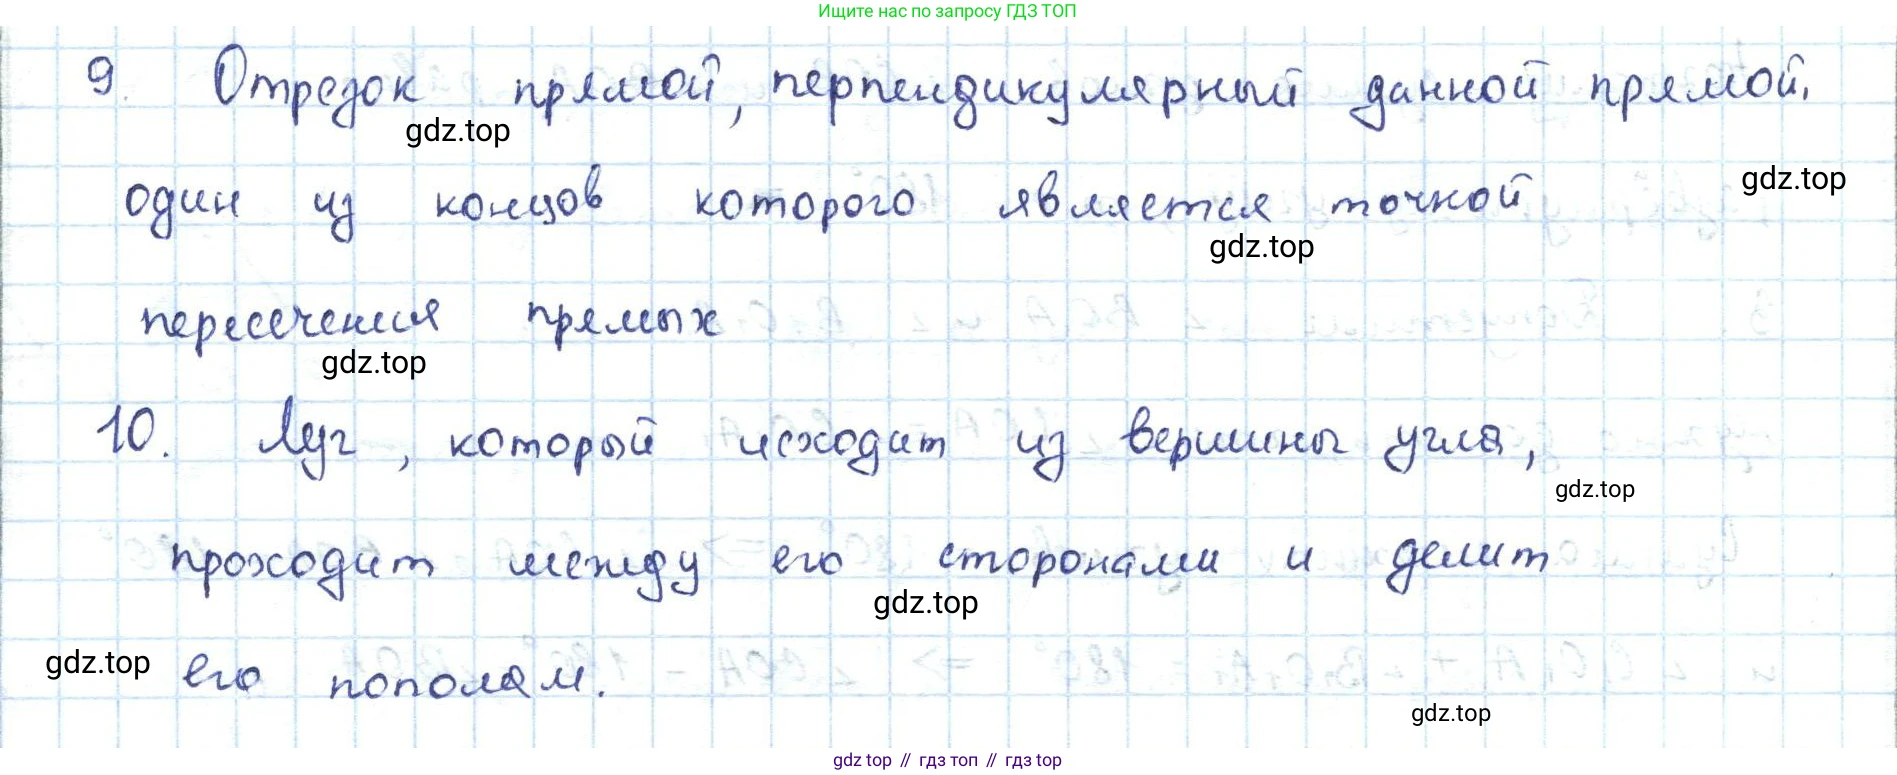 Ищите нас по запросу ГДЗ ТОП
9. Отрезок прямой, перпендикулярный данной прямой,
gdz.top
gdz.top
один из концов которого является точкой
gdz.top
пересечения прямых
gdz.top
10. Луч, который исходит из вершины угла,
gdz.top
проходит между его сторонами и делит
gdz.top
gdz.top
его пополам.
gdz.top
gdz top // гдз топ // гдз top